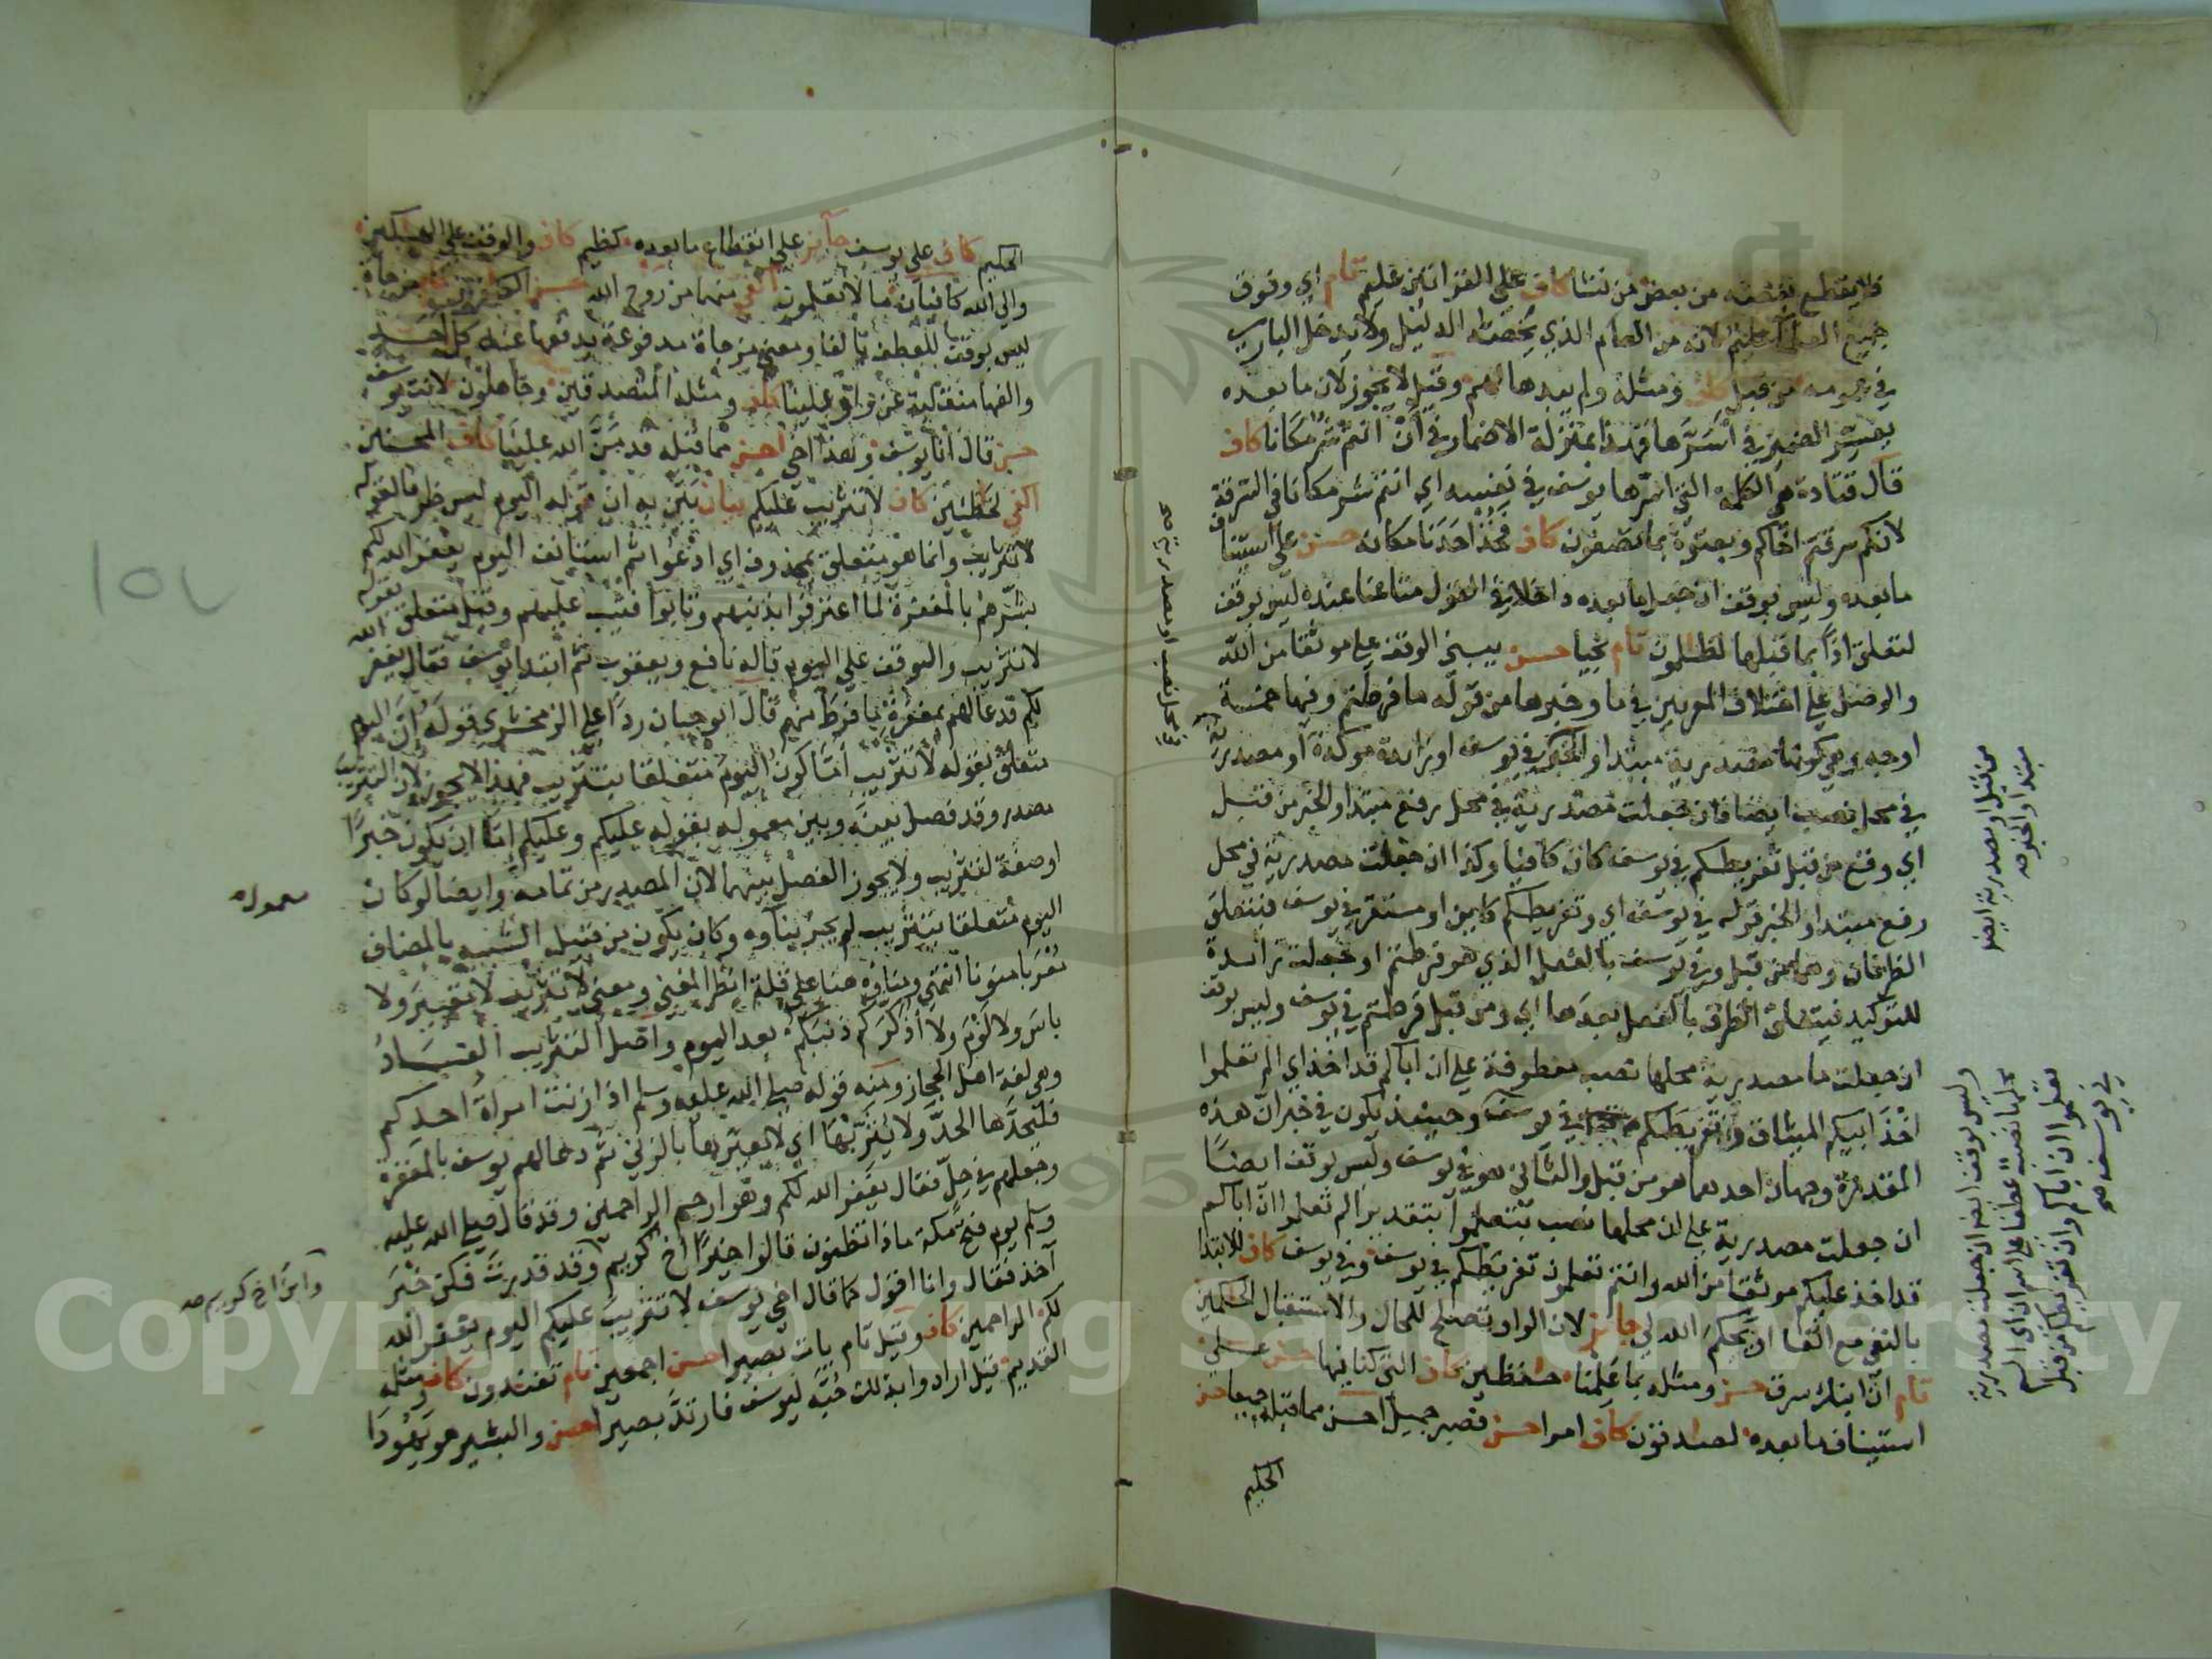 فلا يقطع بعضه من بعض من نشا كاف على القراتين عليم تام اي وفوق
جميع العلما عليم لانه من العام الذي يخصصه الدليل ولا يدخل الباري
في عمومه من قبل كاف ومثله ولم يبدها لهم وقيل لا يجوز لان ما بعده
يفسر الضمير في اسرها فهذا بمنزلة الاضمار في ان انتم شر مكانا كاف
قال قتادة هي الكلمة التي اسرها يوسف في نفسه اي انتم شر مكانا في السرقة
لانكم سرقتم اخاكم وبعتوه بما تصفون كاف فخذ احدنا مكانه حسن على استيناف
ما بعده وليس بوقف ان جعل ما بعده داخلا في القول متاعنا عنده ليس بوقف
لتعلق اذا بما قبلها لظلمون تام نجيا حسن يبنى الوقف على موثقا من الله
والوصل على اختلاف المعربين في ما وخبرها من قوله ما فرطتم وفيها خمسة
اوجه وهي كونها مصدرية مبتدا والخبر في يوسف او زائدة موكدة او مصدرية
في محل نصب ايضا فان جعلت مصدرية في محل رفع مبتدا والخبر من قبل
اي وقع من قبل تفريطكم في يوسف كان كافيا وكذا ان جعلت مصدرية في محل
رفع مبتدا والخبر قوله في يوسف اي وتفريطكم كاين او مستقر في يوسف فيتعلق
الظرفان وهما من قبل وفي يوسف بالفعل الذي هو فرطتم او جعلت زائدة
للتوكيد فيتعلق الظرف بالفعل بعدها اي ومن قبل فرطتم في يوسف وليس بوقف
ان جعلت ما مصدرية محلها نصب معطوفة على ان اباكم قد اخذ اي الم تعلموا
اخذ ابيكم الميثاق وتفريطكم في يوسف وحينئذ يكون في خبر ان هذه
المقدرة وجهان احدهما هو من قبل والثاني هو في يوسف وليس بوقف ايضا
ان جعلت مصدرية على ان محلها نصب بتعلموا بتقدير الم تعلموا ان اباكم
قد اخذ عليكم موثقا من الله وانتم تعلمون تفريطكم في يوسف وفي يوسف كاف للابتدا
بالنفي مع الفا ان يحكم الله لي جائز لان الواو تصلح للحال والاستقبال الحكمين
تام ان ابنك سرق حسن ومثله بما علمنا حفظين كاف التي كنا فيها حسن على
استيناف ما بعده لصدقون كاف امرا حسن فصبر جميل احسن مما قبله جميعا حسن
الحكيم
في محل نصب او مصدرية صح
من قبل او مصدرية ايضا
مبتدا والخبر صح
وليس بوقف ايضا ان جعلت مصدرية
محلها نصب عطفا على ان اي الم
تعلموا ان اباكم وان تفريطكم من قبل
في يوسف صح
الحكيم كاف على يوسف جايز على انقطاع ما بعده كظيم كاف والوقف على الهلكين
والى الله كافيان ما لا تعلمون الفي منهما من روح الله حسن الكفرون مزجاة
ليس بوقف للعطف بالفا ومعنى مزجاة مدفوعة يدفعها عنه كل احد
والفها منقلبة عن واو علينا كاف ومثله المتصدقين وجاهلون لانت يوسف
حسن قال انا يوسف وهذا اخي احسن مما قبله قد من الله علينا كاف المحسنين
الفي لخطئين كاف لا تثريب عليكم بيان بين به ان قوله اليوم ليس ظرفا لقوله
لا تثريب وانما هو متعلق بمحذوف اي ادعوا ثم استانف اليوم يغفر الله لكم
بشرهم بالمغفرة لما اعترفوا بذنبهم وتابوا فتيب عليهم وقيل متعلق بقوله
لا تثريب والوقف على اليوم قاله نافع ويعقوب ثم ابتدا يوسف فقال يغفر الله
لكم فدعا لهم بمغفرة ما فرط منهم قال ابو حيان ردا على الزمخشري قوله ان اليوم
متعلق بقوله لا تثريب اما كون اليوم متعلقا بتثريب فهذا لا يجوز لان التثريب
مصدر وقد فصل بينه وبين معموله بقوله عليكم وعليكم اما ان يكون خبرا
او صفة لتثريب ولا يجوز الفصل بينهما لان المصدر من تمامه وايضا لو كان
اليوم متعلقا بتثريب لم يجز بناوه وكان يكون من قبيل الشبيه بالمضاف
معربا منونا انتهى وبناوه هنا على قلة انظر المغني ومعنى لا تثريب لا تعيير ولا
باس ولا لوم ولا اذكركم ذنبكم بعد اليوم واصل التثريب الفساد
وهي لغة اهل الحجاز ومنه قوله صلى الله عليه وسلم اذا زنت امراة احدكم
فليحدها الحد ولا يثربها اي لا يعيرها بالزنى ثم دعا لهم يوسف بالمغفرة
وجعلهم في حل فقال يغفر الله لكم وهو ارحم الراحمين وقد قال صلى الله عليه
وسلم يوم فتح مكة ماذا تظنون قالوا خيرا اخ كريم وقد قدرت فكن خير
آخذ فقال وانا اقول كما قال اخي يوسف لا تثريب عليكم اليوم يغفر الله
لكم الراحمين كاف وقيل تام يات بصيرا حسن اجمعين تام تفندون كاف ومثله
القديم قيل ارادوا بذلك حبه ليوسف فارتد بصيرا حسن والبشير هو يهودا
معموله
وابن اخ كريم صح
١٥٢